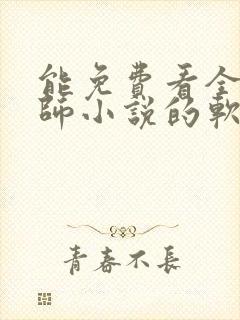 能免費看全
師小說的軟
青春不長